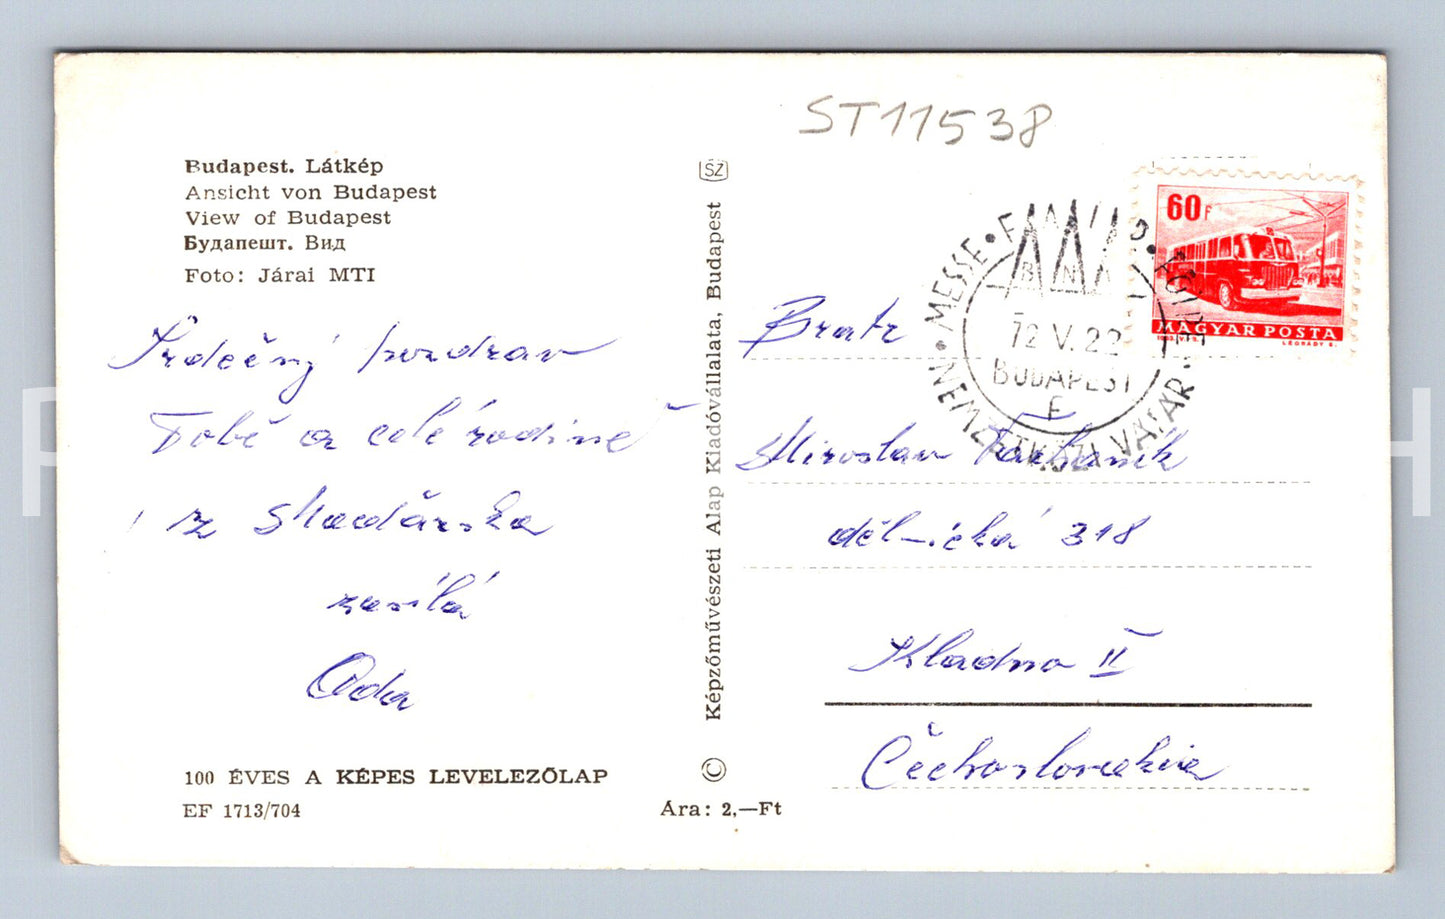 ST11538
Budapest. Látkép
Ansicht von Budapest
View of Budapest
Будапешт. Вид
Foto: Járai MTI
Srdečný pozdrav
Tobě a celé rodině
z Maďarska
zasílá
Oda
100 ÉVES A KÉPES LEVELEZŐLAP
EF 1713/704
SZ
Képzőművészeti Alap Kiadóvállalata, Budapest
©
Ára: 2,—Ft
60F
MAGYAR POSTA
LÉGRÁDY S.
MESSE
BNV
72 V. 22
BUDAPEST
NEMZETKÖZI VÁSÁR
Bratr
Miroslav
dělnická 318
Kladno II
Čechoslovakia